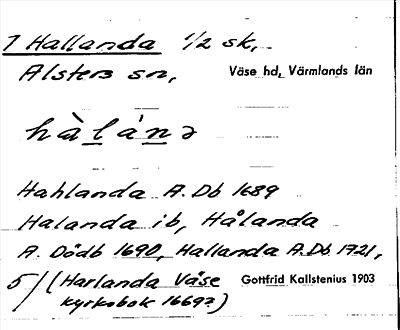 7 Hallanda 1/2 sk,
Alsters sn, Väse hd, Värmlands län
hàlánə
Hahlanda A.Db 1689
Halanda ib, Hålanda
A. Dödb 1690, Hallanda A.Db 1721,
5/(Harlanda Väse Gottfrid Kallstenius 1903
kyrkobok 1669?)